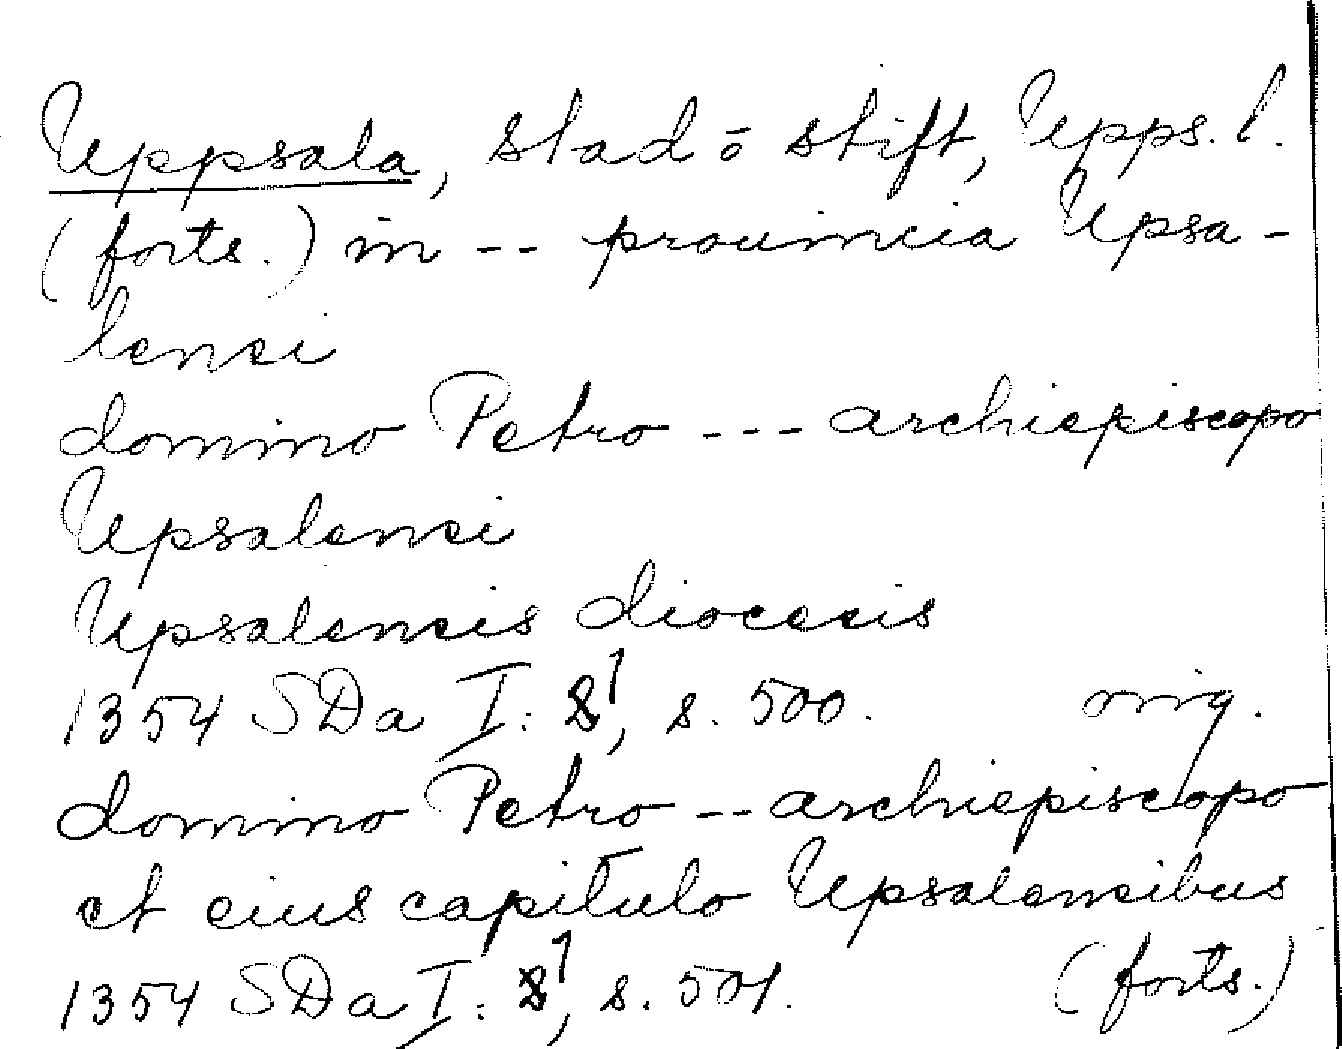 Uppsala, stad o stift, Upps. l.
(forts.) in -- prouincia Upsa-
lensi
domino Petro --- archiepiscopo
Upsalensi
Upsalensis diocesis
1354 SDa I: 1, s. 500. orig.
domino Petro -- archiepiscopo
et eius capitulo Upsalensibus
1354 SDa I: 1, s. 501. (forts.)